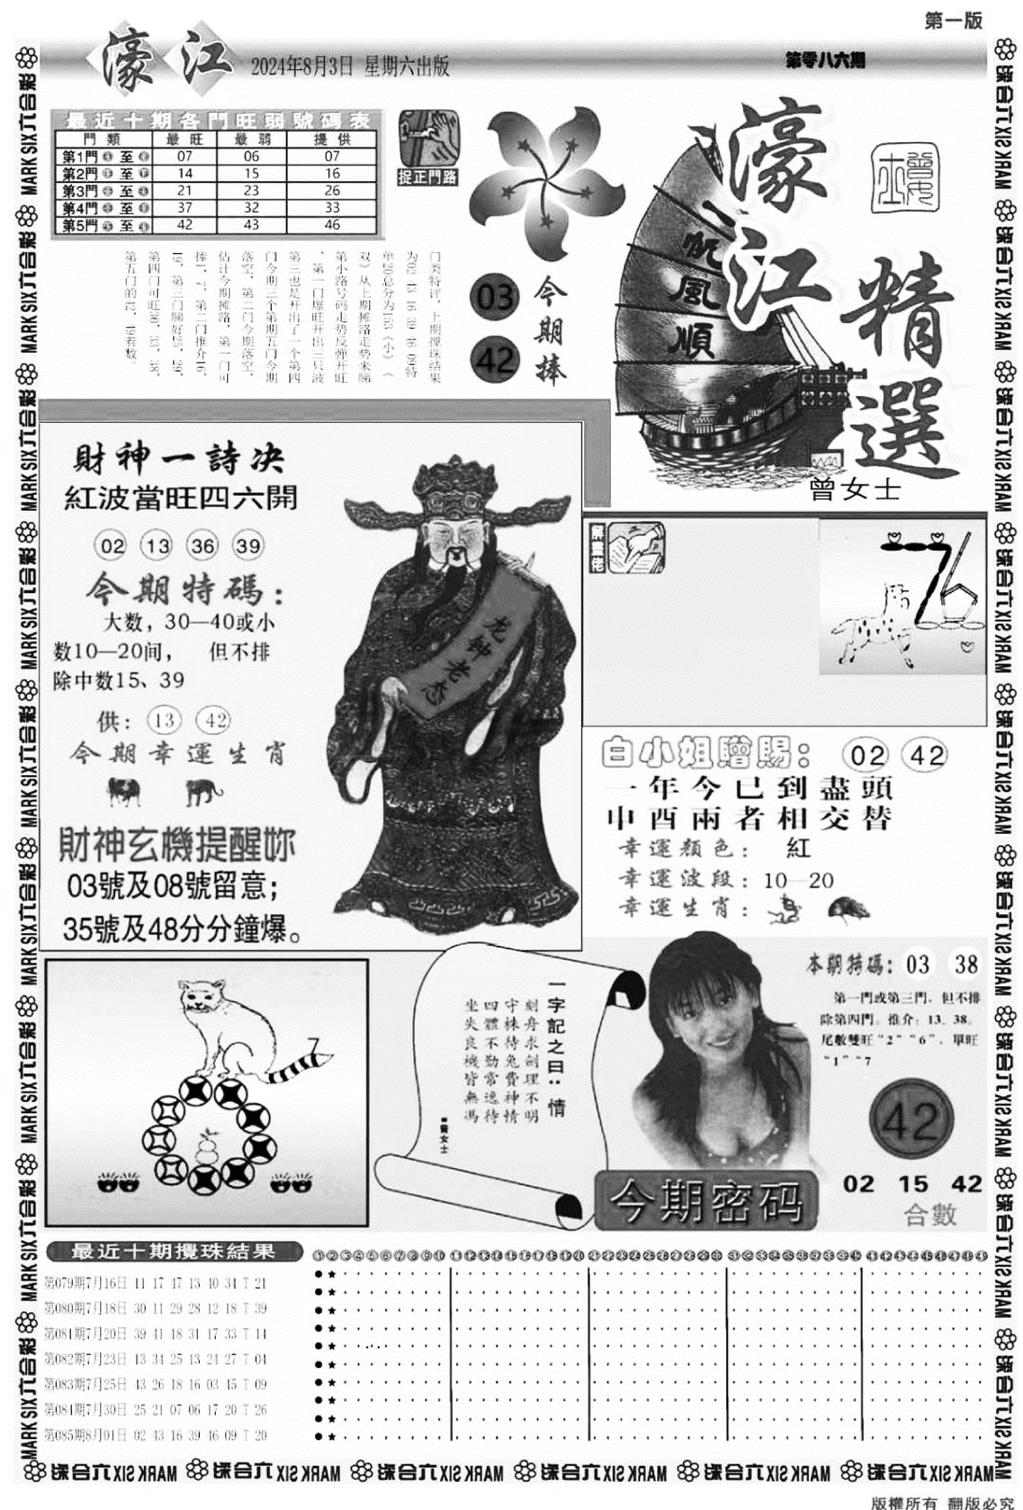 第一版
濠江
2024年8月3日 星期六出版
第零八六期
最近十期各門旺弱號碼表
門類 最旺 最弱 提供
第1門 至 07 06 07
第2門 至 14 15 16
第3門 至 21 23 26
第4門 至 37 32 33
第5門 至 42 43 46
捉正門路
03
42
今期捧
一帆風順
濠江
精選
曾女士
財神一詩决
紅波當旺四六開
02 13 36 39
今期特碼：
大数，30—40或小
数10—20间， 但不排
除中数15、39
供： 13 42
今期幸運生肖
財神玄機提醒妳
03號及08號留意；
35號及48分分鐘爆。
龙钟老态
76
白小姐贈賜： 02 42
一年今已到盡頭
申酉兩者相交替
幸運顏色： 紅
幸運波段：10—20
幸運生肖：
7
一字記之曰：情
刻舟求劍理不明
守株待兔費神情
四體不勤常逸待
坐失良機皆無馮
曾女士
本期特碼：03 38
第一門或第三門，但不排
除第四門。推介：13．38。
尾數雙旺“2”“6”．單旺
“1”“7
42
今期密码
02 15 42
合數
最近十期攪珠結果
第079期7月16日 11 17 47 13 40 34 T 21
第080期7月18日 30 11 29 28 12 18 T 39
第081期7月20日 39 41 18 31 17 33 T 14
第082期7月23日 13 34 25 13 24 27 T 04
第083期7月25日 43 26 18 16 03 45 T 09
第084期7月30日 25 21 07 06 17 20 T 26
第085期8月01日 02 43 16 39 46 09 T 20
MARK SIX 六合彩
版權所有 翻版必究